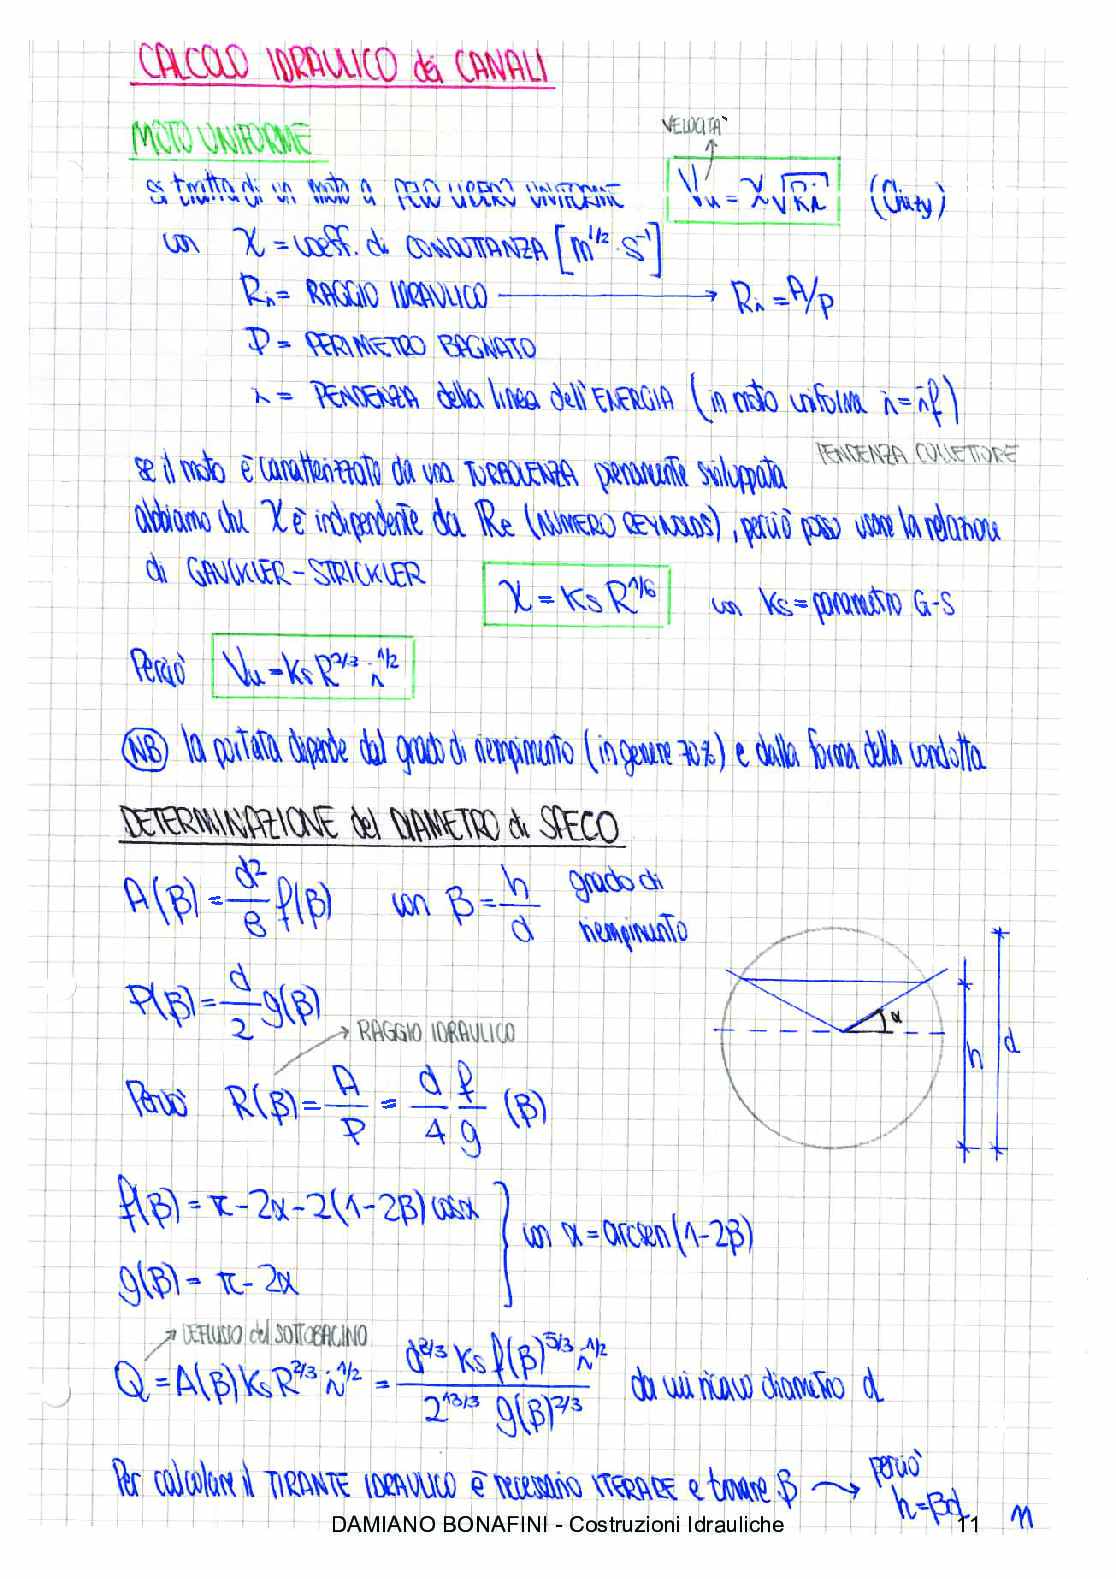 CALCOLO IDRAULICO dei CANALI
MOTO UNIFORME
VELOCITA'
si tratta di un moto a PELO LIBERO UNIFORME Vu = χ√Ri (Chézy)
con χ = coeff. di CONDUTTANZA [m^1/2 · s^-1]
Ri = RAGGIO IDRAULICO → Ri = A/P
P = PERIMETRO BAGNATO
i = PENDENZA della linea dell'ENERGIA (in moto uniforme i = if)
PENDENZA COLLETTORE
se il moto è caratterizzato da una TURBOLENZA pienamente sviluppata
abbiamo che χ è indipendente da Re (NUMERO REYNOLDS), perciò posso usare la relazione
di GAUCKLER-STRICKLER χ = Ks R^1/6 con Ks = parametro G-S
Perciò Vu = Ks R^2/3 · i^1/2
NB la portata dipende dal grado di riempimento (in genere 70%) e dalla forma della condotta
DETERMINAZIONE del DIAMETRO di SPECO
A(β) = d²/8 f(β) con β = h/d grado di
riempimento
P(β) = d/2 g(β)
RAGGIO IDRAULICO
Perciò R(β) = A/P = d/4 f/g (β)
α
h
d
f(β) = π - 2α - 2(1-2β) cosα
con α = arcsen(1-2β)
g(β) = π - 2α
DEFLUSSO del SOTTOBACINO
Q = A(β) Ks R^2/3 · i^1/2 = d^8/3 Ks f(β)^5/3 i^1/2 / 2^13/3 g(β)^2/3 da cui ricavo diametro d
Per calcolare il TIRANTE IDRAULICO è necessario ITERARE e trovare β → perciò
h = βd
DAMIANO BONAFINI - Costruzioni Idrauliche 11